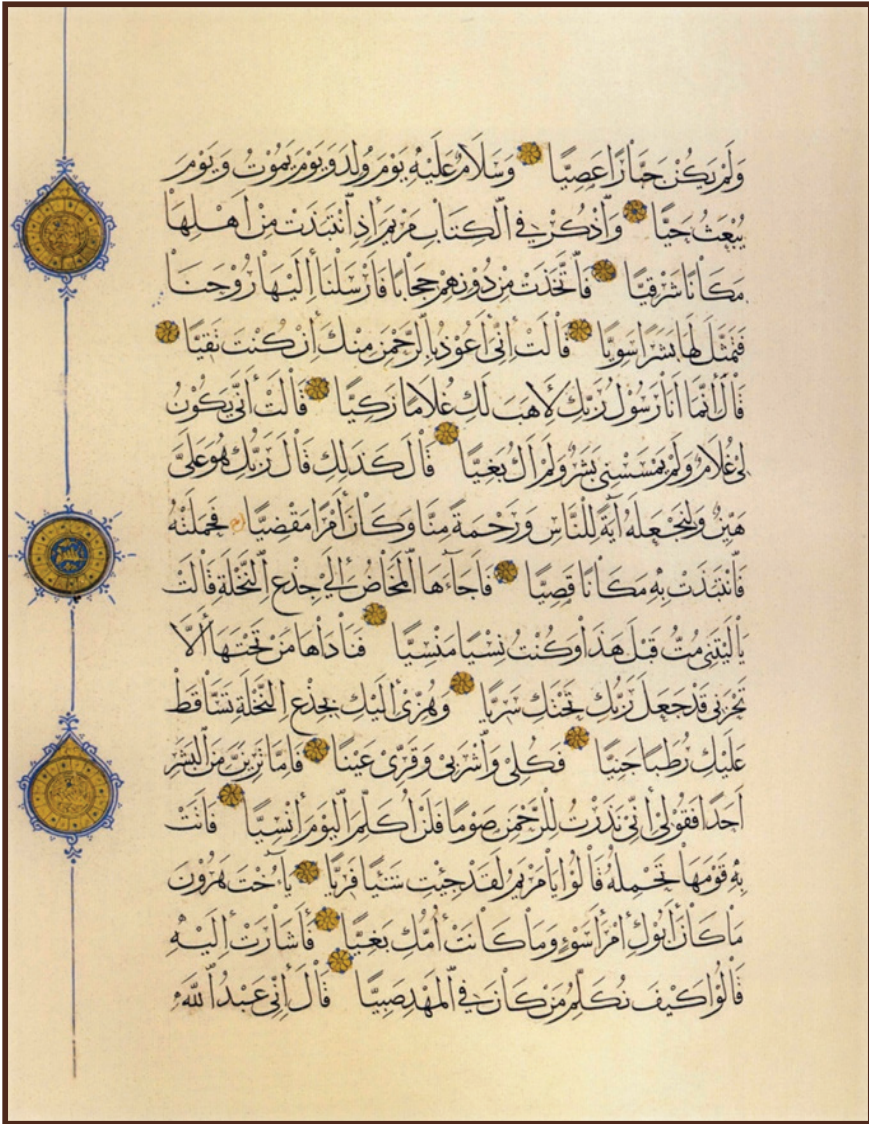 وَلَمْ يَكُنْ جَبَّارًا عَصِيًّا وَسَلَامٌ عَلَيْهِ يَوْمَ وُلِدَ وَيَوْمَ يَمُوتُ وَيَوْمَ
يُبْعَثُ حَيًّا وَاذْكُرْ فِي الْكِتَابِ مَرْيَمَ إِذِ انْتَبَذَتْ مِنْ أَهْلِهَا
مَكَانًا شَرْقِيًّا فَاتَّخَذَتْ مِنْ دُونِهِمْ حِجَابًا فَأَرْسَلْنَا إِلَيْهَا رُوحَنَا
فَتَمَثَّلَ لَهَا بَشَرًا سَوِيًّا قَالَتْ إِنِّي أَعُوذُ بِالرَّحْمَنِ مِنْكَ إِنْ كُنْتَ تَقِيًّا
قَالَ إِنَّمَا أَنَا رَسُولُ رَبِّكِ لِأَهَبَ لَكِ غُلَامًا زَكِيًّا قَالَتْ أَنَّى يَكُونُ
لِي غُلَامٌ وَلَمْ يَمْسَسْنِي بَشَرٌ وَلَمْ أَكُ بَغِيًّا قَالَ كَذَلِكِ قَالَ رَبُّكِ هُوَ عَلَيَّ
هَيِّنٌ وَلِنَجْعَلَهُ آيَةً لِلنَّاسِ وَرَحْمَةً مِنَّا وَكَانَ أَمْرًا مَقْضِيًّا فَحَمَلَتْهُ
فَانْتَبَذَتْ بِهِ مَكَانًا قَصِيًّا فَأَجَاءَهَا الْمَخَاضُ إِلَى جِذْعِ النَّخْلَةِ قَالَتْ
يَا لَيْتَنِي مُتُّ قَبْلَ هَذَا وَكُنْتُ نِسْيًا مَنْسِيًّا فَنَادَاهَا مَنْ تَحْتَهَا أَلَّا
تَحْزَنِي قَدْ جَعَلَ رَبُّكِ تَحْتَكِ سَرِيًّا وَهُزِّي إِلَيْكِ بِجِذْعِ النَّخْلَةِ تَسَّاقَطْ
عَلَيْكِ رُطَبًا جَنِيًّا فَكُلِي وَاشْرَبِي وَقَرِّي عَيْنًا فَإِمَّا تَرَيِنَّ مِنَ الْبَشَرِ
أَحَدًا فَقُولِي إِنِّي نَذَرْتُ لِلرَّحْمَنِ صَوْمًا فَلَنْ أُكَلِّمَ الْيَوْمَ إِنْسِيًّا فَأَتَتْ
بِهِ قَوْمَهَا تَحْمِلُهُ قَالُوا يَا مَرْيَمُ لَقَدْ جِئْتِ شَيْئًا فَرِيًّا يَا أُخْتَ هَرُونَ
مَا كَانَ أَبُوكِ امْرَأَ سَوْءٍ وَمَا كَانَتْ أُمُّكِ بَغِيًّا فَأَشَارَتْ إِلَيْهِ
قَالُوا كَيْفَ نُكَلِّمُ مَنْ كَانَ فِي الْمَهْدِ صَبِيًّا قَالَ إِنِّي عَبْدُ اللَّهِ